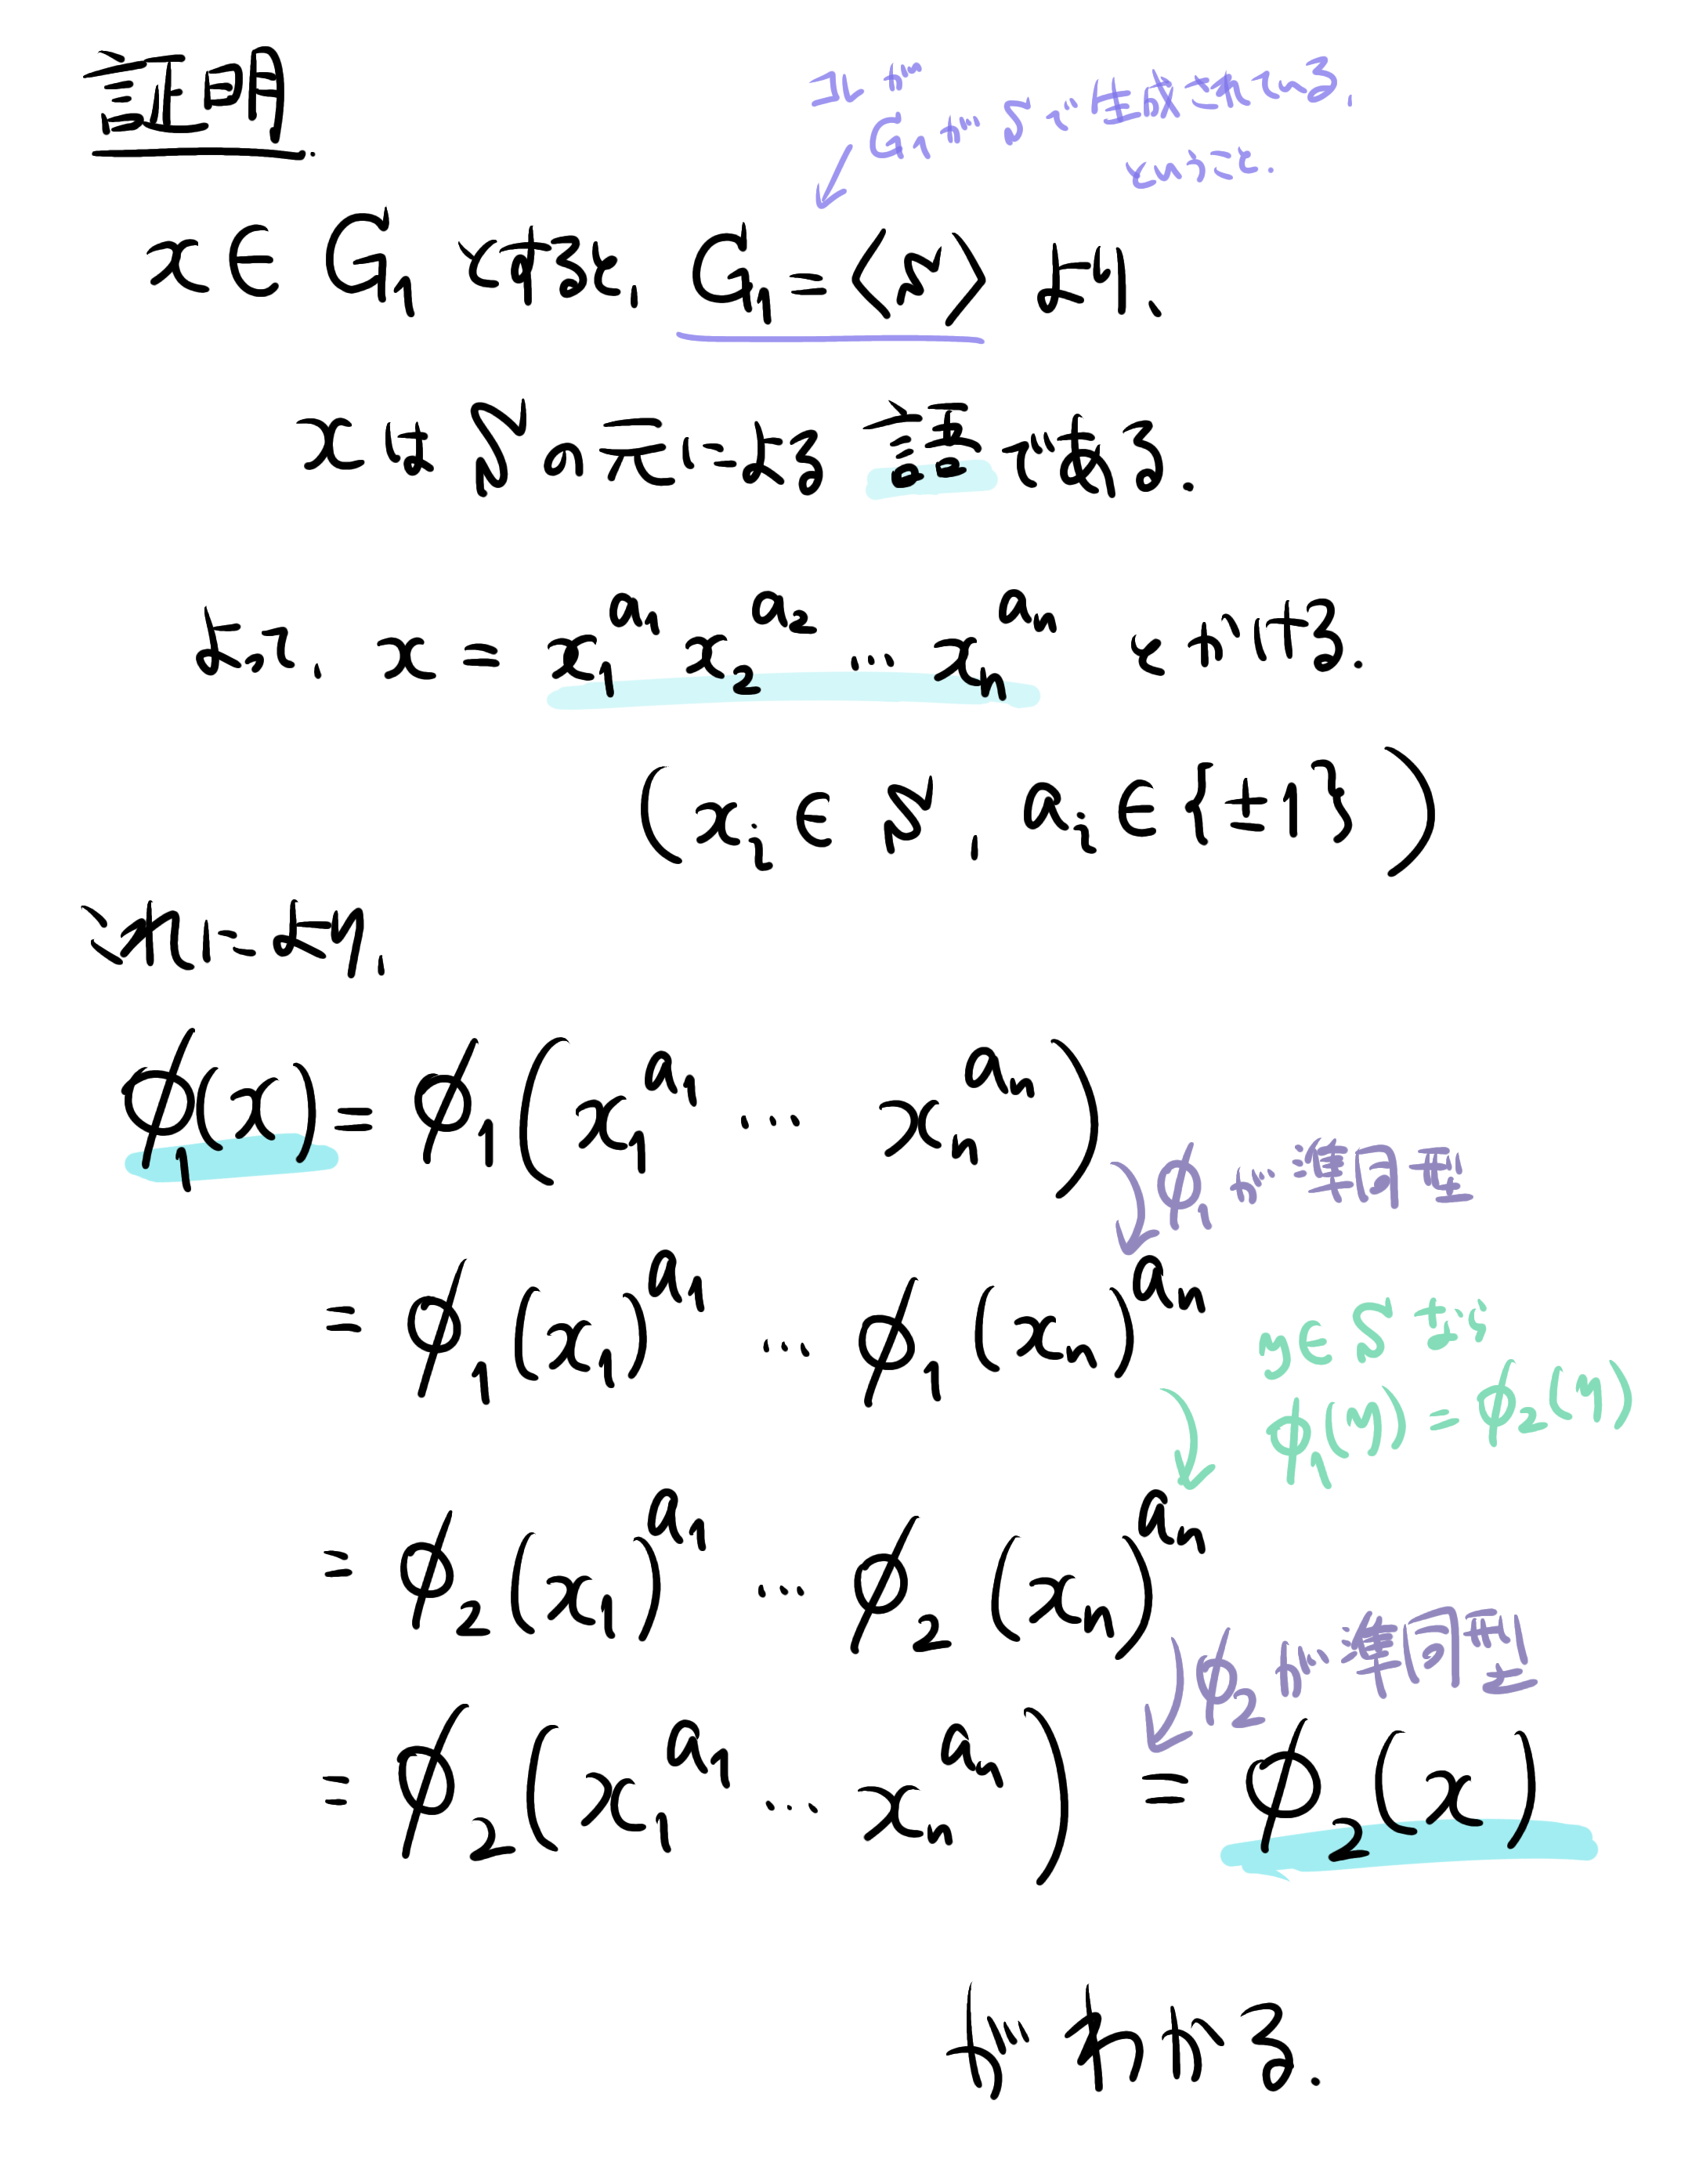 証明.
コレが
G₁がSで生成されている,
ということ.
x ∈ G₁ とすると, G₁ = ⟨S⟩ より、
xはSの元による語である.
よって, x = x₁^{a₁} x₂^{a₂} … xₙ^{aₙ} とかける.
(xᵢ ∈ S, aᵢ ∈ {±1})
これにより,
φ₁(x) = φ₁(x₁^{a₁} … xₙ^{aₙ})
φ₁が準同型
= φ₁(x₁)^{a₁} … φ₁(xₙ)^{aₙ}
y∈Sなら
φ₁(y) = φ₂(y)
= φ₂(x₁)^{a₁} … φ₂(xₙ)^{aₙ}
φ₂が準同型
= φ₂(x₁^{a₁} … xₙ^{aₙ}) = φ₂(x)
がわかる.